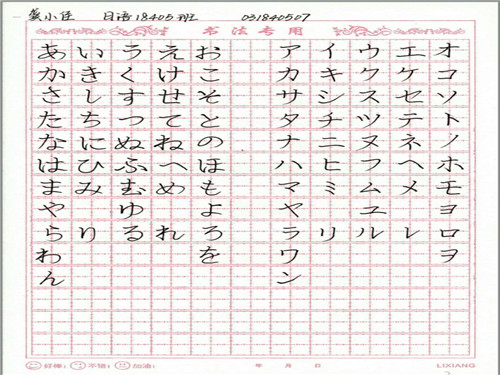 小佳 日语18405班 031840507
书法专用
あ い う え お ア イ ウ エ オ
か き く け こ カ キ ク ケ コ
さ し す せ そ サ シ ス セ ソ
た ち つ て と タ チ ツ テ ト
な に ぬ ね の ナ ニ ヌ ネ ノ
は ひ ふ へ ほ ハ ヒ フ ヘ ホ
ま み む め も マ ミ ム メ モ
や ゆ よ ヤ ユ ヨ
ら り る れ ろ ラ リ ル レ ロ
わ を ワ ヲ
ん ン
好棒: 不错: 加油: 年 月 日 LIXIANG